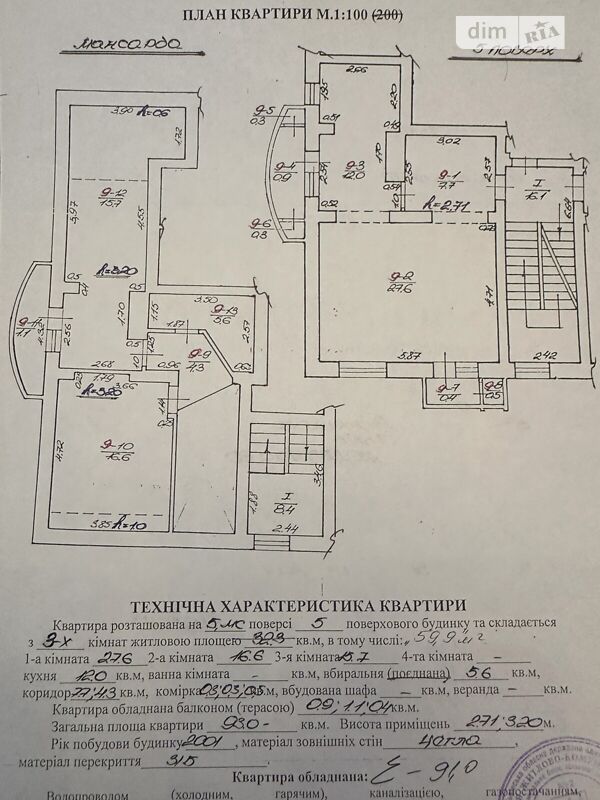 ПЛАН КВАРТИРИ М.1:100 (200)
dim RIA
мансарда
5 поверх
3,90 h=0,6
1,72
9-12
15,7
3,97
4,55
h=3,20
0,5
0,4
0,5
1,70
9-11
1,1
4,32
2,56
0,5
2,68
1,15
3,50
9-13
5,6
2,57
1,87
1,25
9-9
4,3
1,0
0,96
0,62
1,79
3,66
h=3,20
1,44
4,72
9-10
16,6
3,85 h=1,0
1,88
3,46
I
8,4
2,44
2,66
1,95
2,20
9-5
0,3
0,51
0,49
9-4
0,9
2,54
9-3
12,0
1,70
3,02
9-1
7,7
2,55
2,57
0,54
1,0
h=2,71
9-6
0,3
0,52
I
16,1
6,69
9-2
27,6
4,71
5,87
2,42
9-7
0,4
9-8
0,5
ТЕХНІЧНА ХАРАКТЕРИСТИКА КВАРТИРИ
Квартира розташована на 5,мс поверсі 5 поверхового будинку та складається
з 3-х кімнат житловою площею 32,3 кв.м, в тому числі: 59,9 м²
1-а кімната 27,6 2-а кімната 16,6 3-я кімната 15,7 4-та кімната -
кухня 12,0 кв.м, ванна кімната - кв.м, вбиральня (поєднана) 5,6 кв.м,
коридор 7,7; 4,3 кв.м, комірка 0,3; 0,3; 0,5 кв.м, вбудована шафа - кв.м, веранда - кв.м.
Квартира обладнана балконом (терасою) 0,9; 1,1; 0,4 кв.м.
Загальна площа квартири 93,0- кв.м. Висота приміщень 2,71; 3,20 м.
Рік побудови будинку 2001, матеріал зовнішніх стін цегла,
матеріал перекриття з/б.
Квартира обладнана: Σ - 91,0
Водопроводом (холодним, гарячим), каналізацією, газопостачанням,